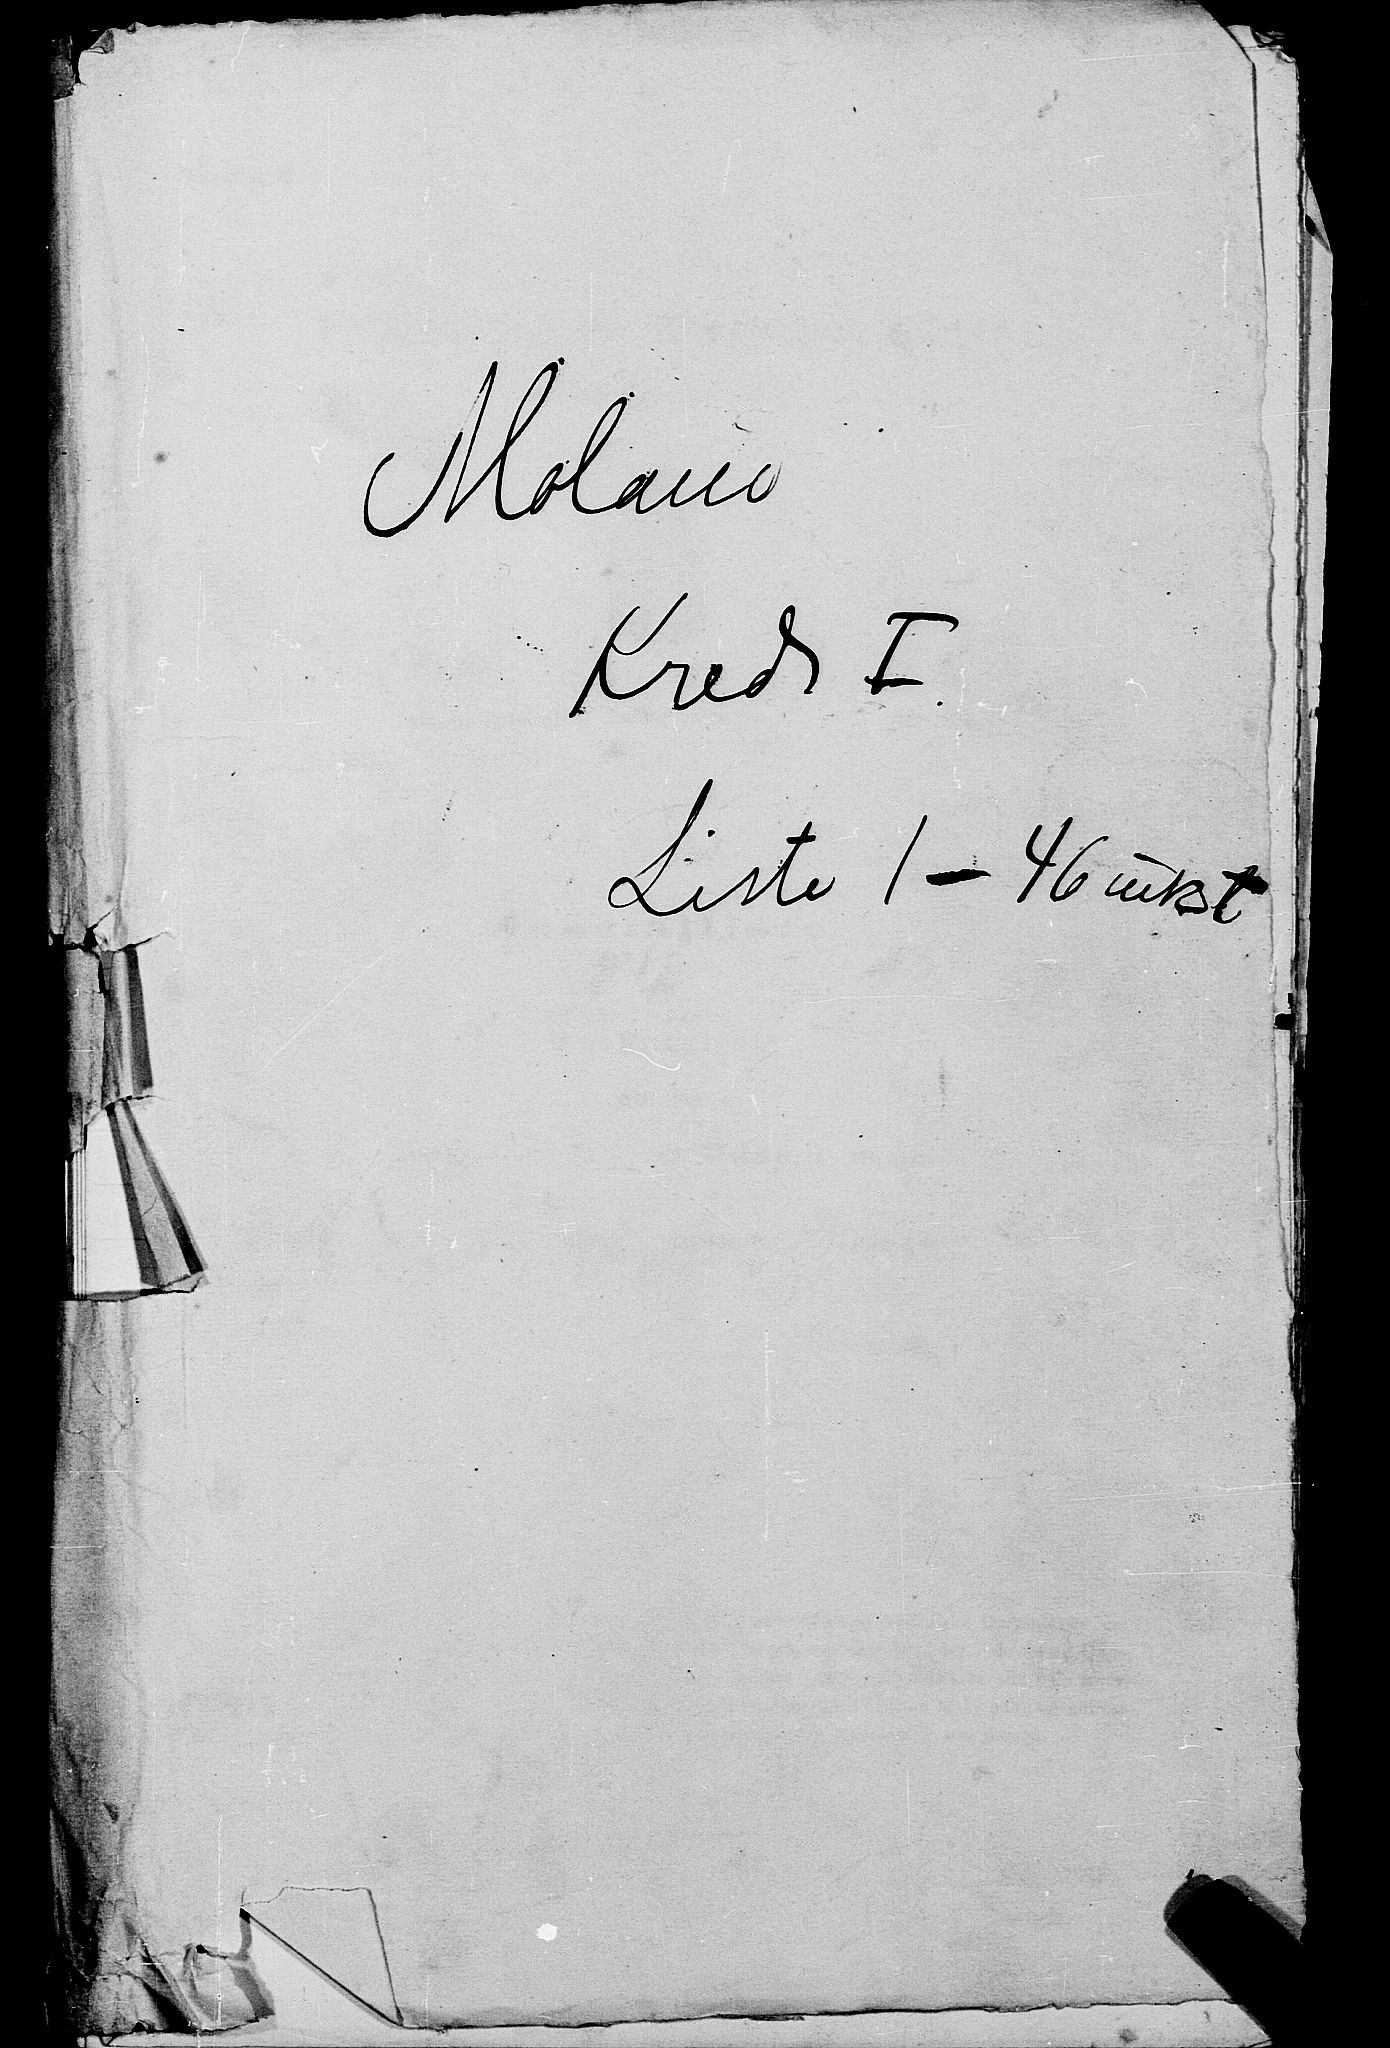 Moland
Kreds I.
Liste 1 – 46 inkst